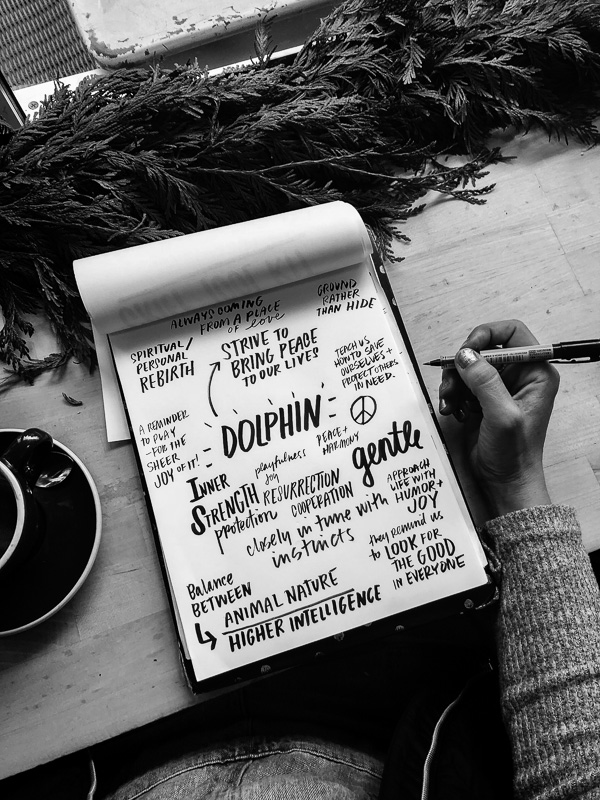 ALWAYS COMING
FROM A PLACE
of love
GROUND
RATHER
THAN HIDE
SPIRITUAL/
PERSONAL
REBIRTH
STRIVE TO
BRING PEACE
TO OUR LIVES
TEACH US
HOW TO SAVE
OURSELVES +
PROTECT OTHERS
IN NEED.
A REMINDER
TO PLAY
-FOR THE
SHEER
JOY OF IT!
DOLPHIN
PEACE +
HARMONY
gentle
INNER
STRENGTH
playfulness
joy
RESURRECTION
COOPERATION
protection
APPROACH
LIFE WITH
HUMOR +
JOY
closely in tune with
instincts
they remind us
to LOOK FOR
THE GOOD
IN EVERYONE
Balance
BETWEEN
ANIMAL NATURE
HIGHER INTELLIGENCE